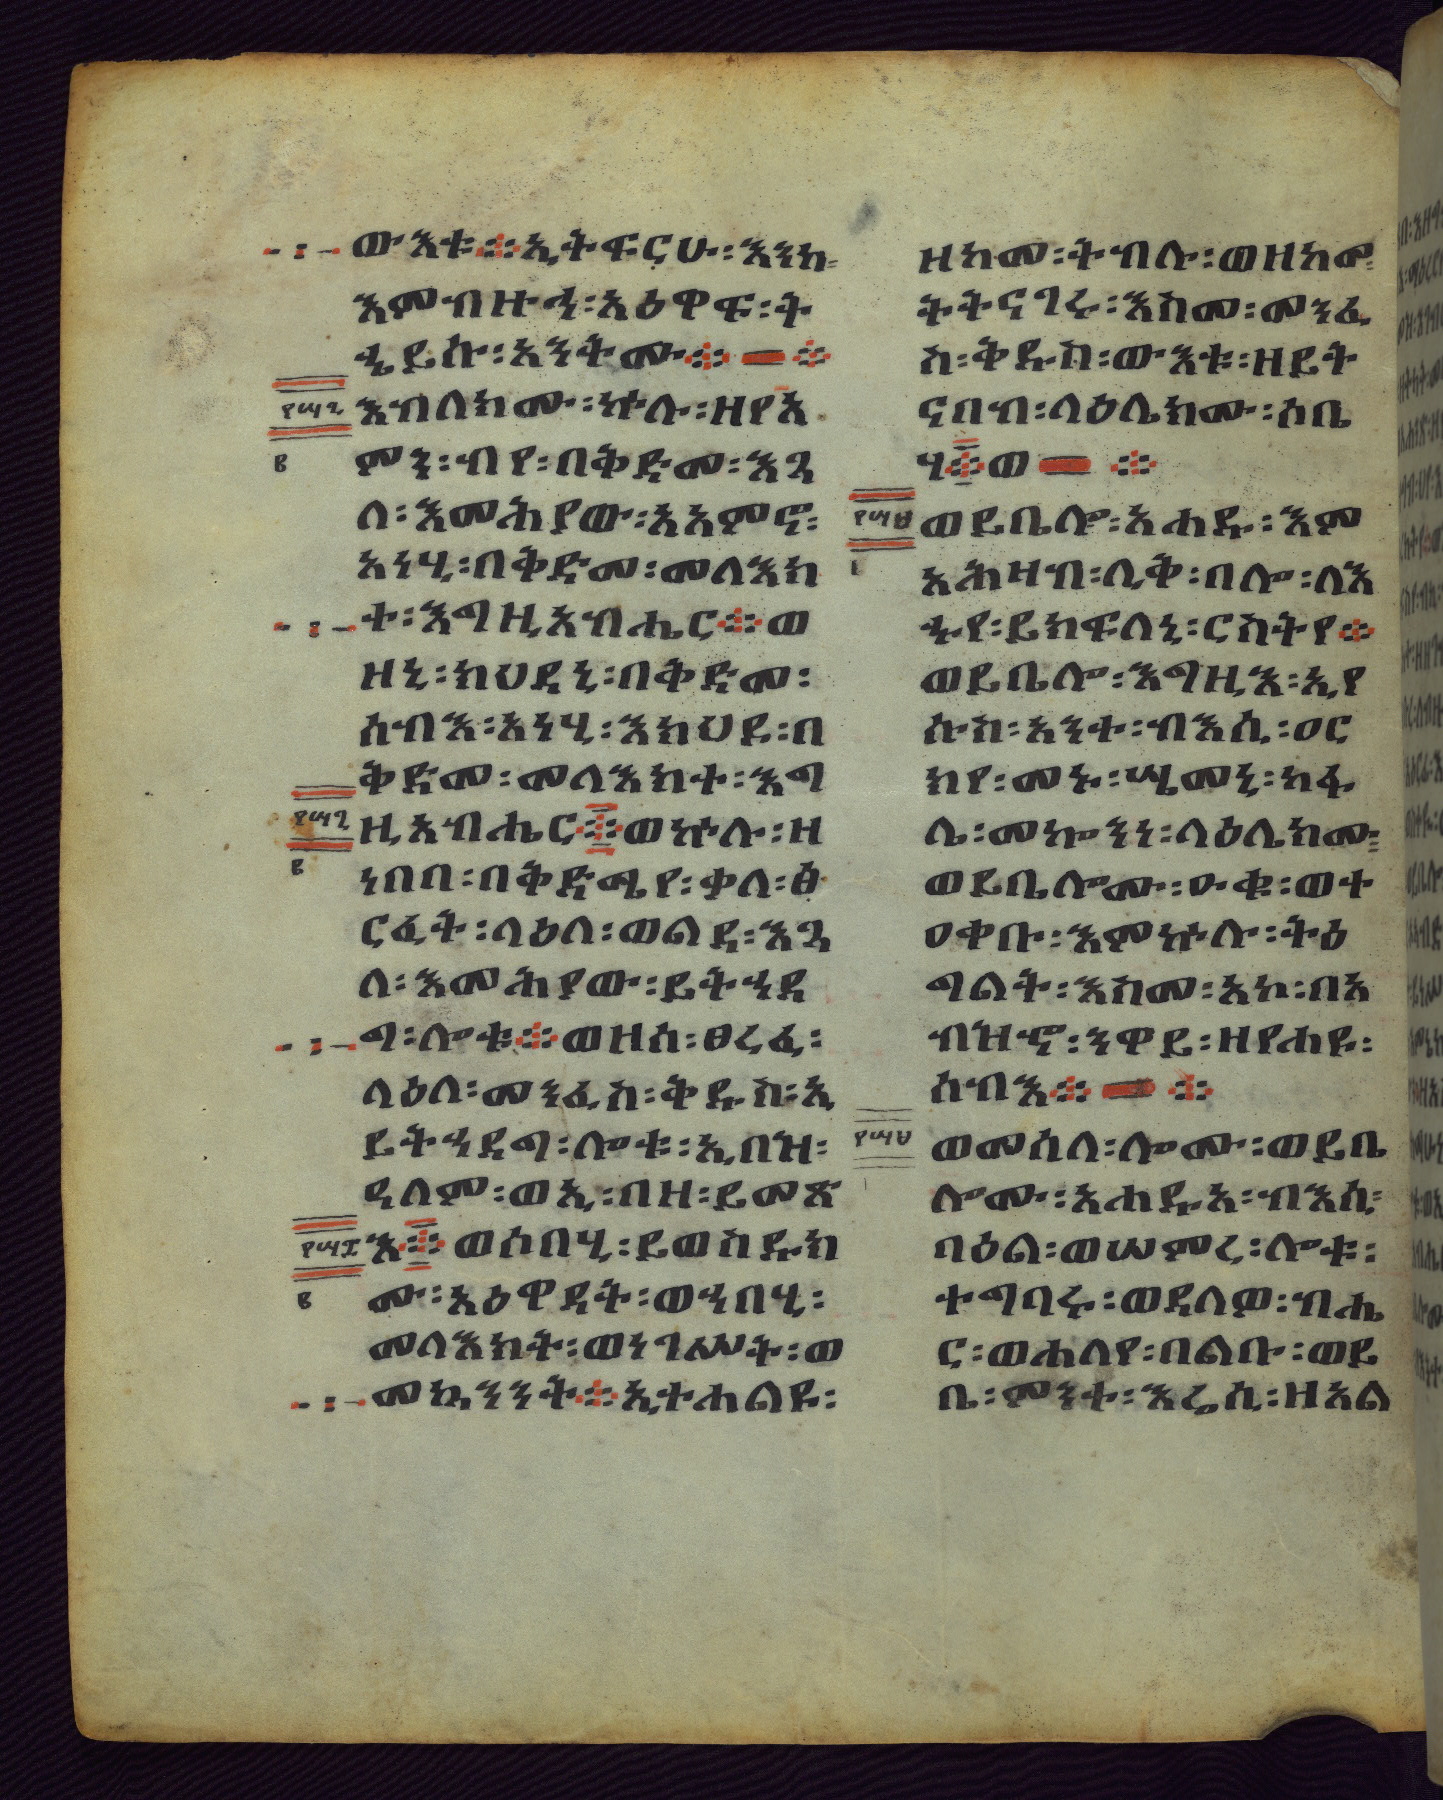 ውእቱ፨ኢትፍርሁ፡እንከ፡
እምብዙኃ፡አዕዋፍ፡ት
ኄይሱ፡አንትሙ፨ ፨
እብለክሙ፡ኵሉ፡ዘየአ
ምን፡ብየ፡በቅድመ፡እጓ
ለ፡እመሕያው፡አአምኖ፡
አነሂ፡በቅድመ፡መላእክ
ተ፡እግዚአብሔር፨ወ
ዘኒ፡ክህደኒ፡በቅድመ፡
ሰብእ፡አነሂ፡እክህዶ፡በ
ቅድመ፡መላእክተ፡እግ
ዚአብሔር፨ወኵሉ፡ዘ
ነበበ፡በቅድሜየ፡ቃለ፡ፅ
ርፈት፡ላዕለ፡ወልደ፡እጓ
ለ፡እመሕያው፡ይትኃደ
ግ፡ሎቱ፨ወዘሰ፡ፀረፈ፡
ላዕለ፡መንፈስ፡ቅዱስ፡ኢ
ይትኃደግ፡ሎቱ፡ኢበዝ፡
ዓለም፡ወኢ፡በዘ፡ይመጽ
እ፨ወሶበሂ፡ይወስዱክ
ሙ፡አዕዋዳት፡ወኃበሂ፡
መላእክት፡ወነገሥት፡ወ
መኳንንት፨ኢተሐልዩ፡
ዘከመ፡ትብሉ፡ወዘከመ፡
ትትናገሩ፡እስመ፡መንፈ
ስ፡ቅዱስ፡ውእቱ፡ዘይት
ናበብ፡ላዕሌክሙ፡ሶቤ
ሃ፨ወ ፨
ወይቤሎ፡አሐዱ፡እም
አሕዛብ፡ሊቅ፡በሎ፡ለእ
ኁየ፡ይክፍለኒ፡ርስትየ፨
ወይቤሎ፡እግዚእ፡ኢየ
ሱስ፡አንተ፡ብእሲ፡ዐር
ክየ፡መኑ፡ሤመኒ፡ከፋ
ሌ፡መኰንነ፡ላዕሌክሙ፡
ወይቤሎሙ፡ዑቁ፡ወተ
ዐቀቡ፡እምኵሉ፡ትዕ
ግልት፡እስመ፡አኮ፡በአ
ብዝኖ፡ንዋይ፡ዘየሐዩ፡
ሰብእ፨ ፨
ወመሰለ፡ሎሙ፡ወይቤ
ሎሙ፡አሐዱአ፡ብእሲ፡
ባዕል፡ወሠምረ፡ሎቱ፡
ተግባሩ፡ወዓለወ፡ብሔ
ር፡ወሐለየ፡በልቡ፡ወይ
ቤ፡ምንተ፡እሬሲ፡ዘአል